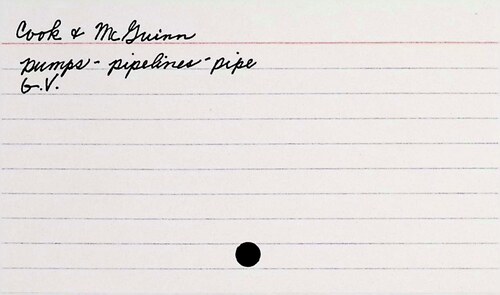 Cook & McGuinn
pumps - pipelines - pipe
G.V.